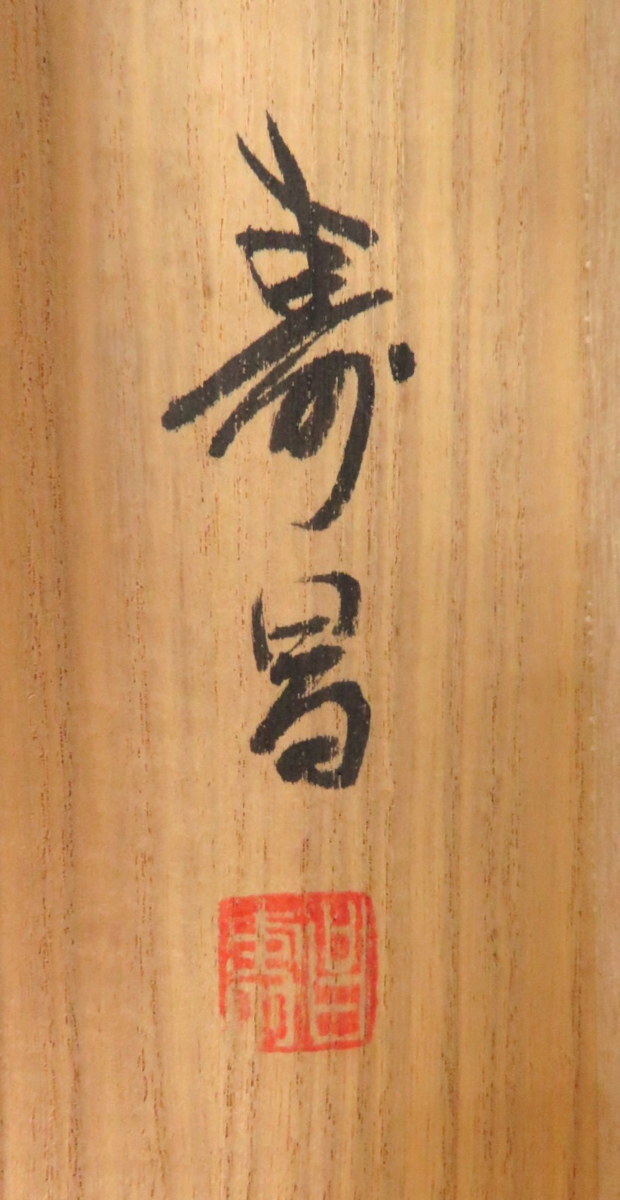 寿昌
寿昌